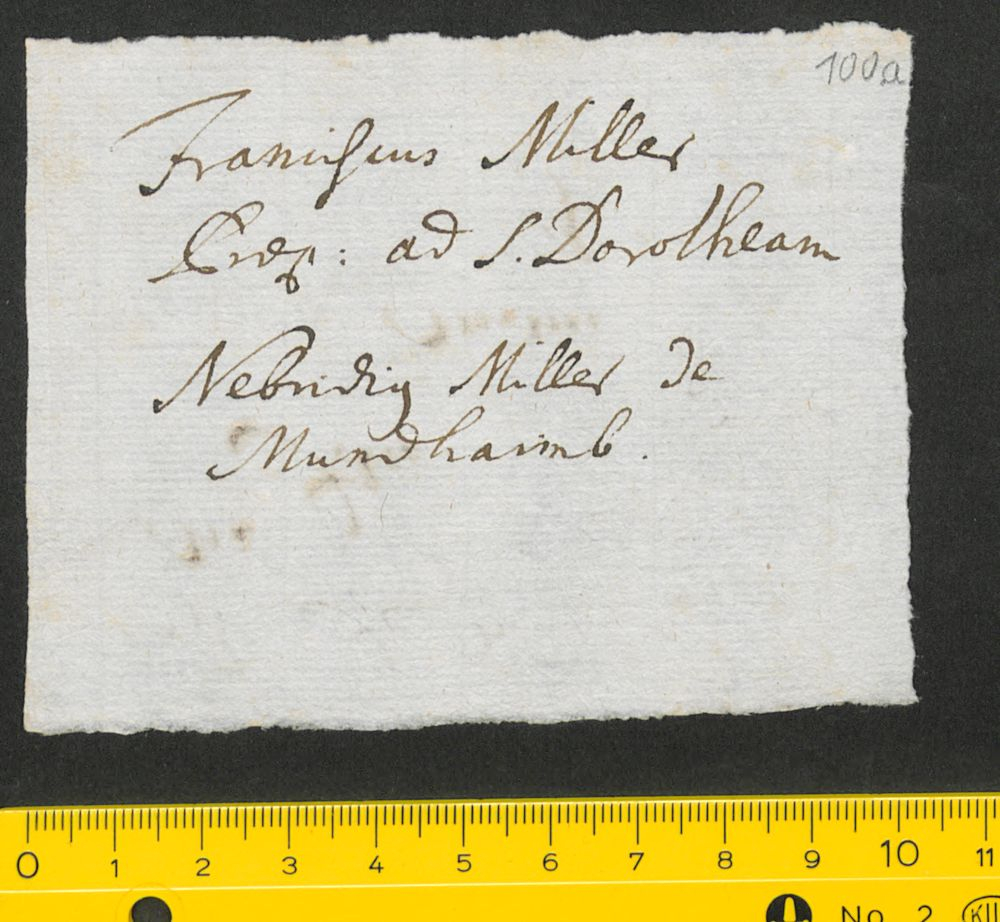 100a
Franciscus Miller
Præp: ad S. Dorotheam
Nebridig Miller de
Mundhaimb.
0 1 2 3 4 5 6 7 8 9 10 11
No. 2 KÜ